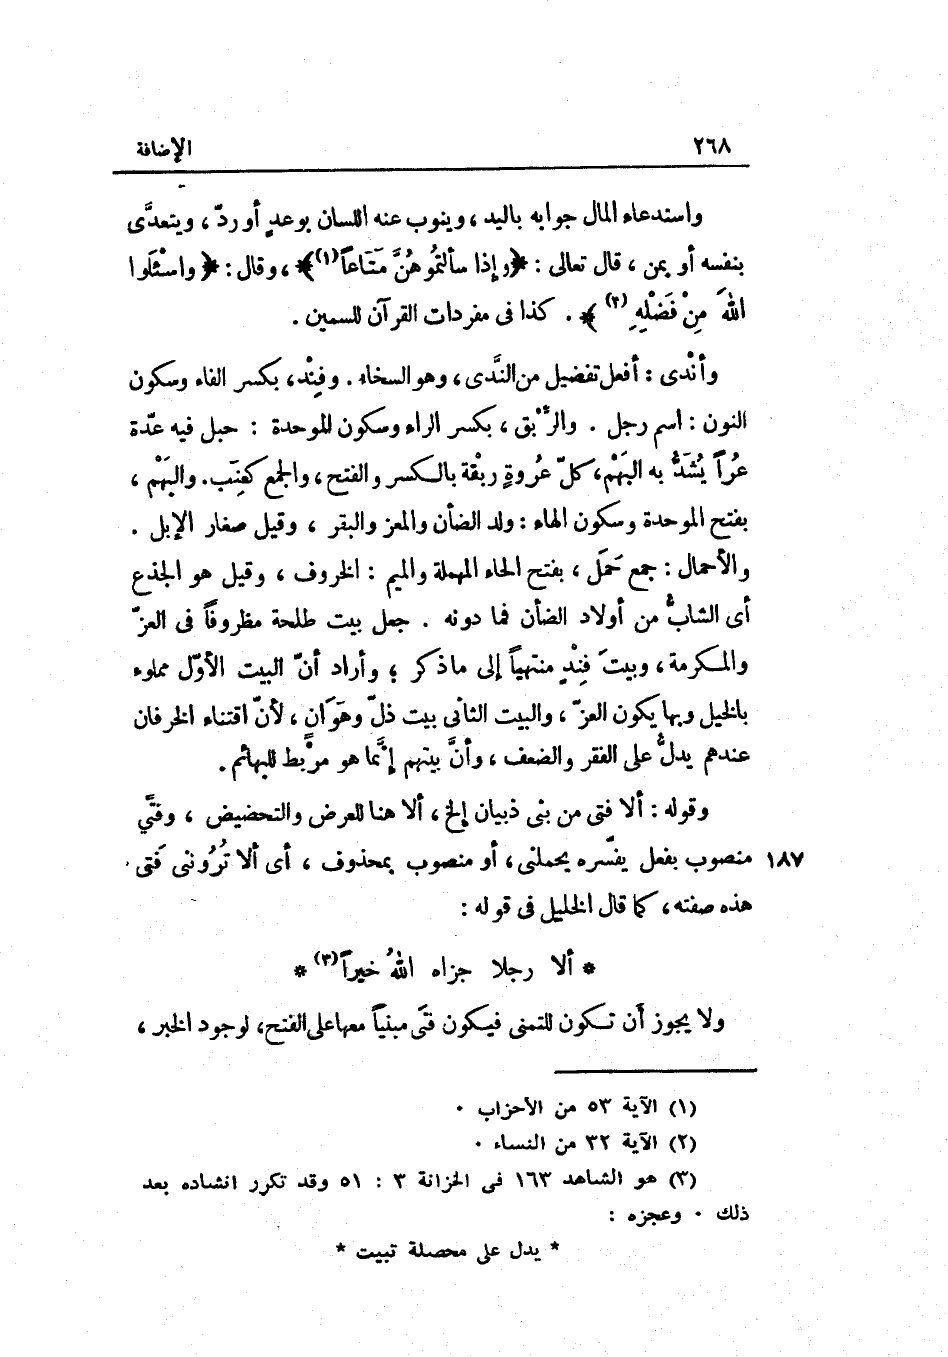 ٢٦٨ الإضافة
واستدعاء المال جوابه باليد ، وينوب عنه اللسان بوعدٍ أو ردّ ، ويتعدَّى
بنفسه أو بمن ، قال تعالى : ﴿وإذا سألتمُوهُنَّ مَتَاعاً(١)﴾ ، وقال : ﴿واسْئَلوا
اللهَ مِنْ فَضْلِهِ (٢) ﴾ . كذا فى مفردات القرآن للسمين .
وأنْدى : أفعل تفضيل من النَّدى ، وهو السخاء . وفِنْد ، بكسر الفاء وسكون
النون : اسم رجل . والرِّبْق ، بكسر الراء وسكون الموحدة : حبل فيه عدّة
عُراً يُشَدُّ به البَهْم ، كلّ عُروةٍ ربْقة بالكسر والفتح ، والجمع كعِنَب . والبَهْم ،
بفتح الموحدة وسكون الهاء : ولد الضأن والمعز والبقر ، وقيل صغار الإبل .
والأحمال : جمع حَمَل ، بفتح الحاء المهملة والميم : الخروف ، وقيل هو الجذع
أى الشابُّ من أولاد الضأن فما دونه . جعل بيت طلحة مظروفاً فى العزّ
والمكرمة ، وبيتَ فِنْدٍ منتهياً إلى ماذكر ؛ وأراد أنّ البيت الأوّل مملوء
بالخيل وبها يكون العزّ ، والبيت الثانى بيت ذلّ وهَوَانٍ ، لأنّ اقتناء الخرفان
عندهم يدلُّ على الفقر والضعف ، وأنَّ بيتهم إنَّما هو مرْبط للبهائم .
وقوله : ألا فتى من بنى ذبيان إلخ ، ألا هنا للعرض والتحضيض ، وفتًى
١٨٧ منصوب بفعل يفسّره يحملنى ، أو منصوب بمحذوف ، أى ألا تُرُوننى فَتى
هذه صفته ، كما قال الخليل فى قوله :
* ألا رجلا جزاه اللهُ خيراً(٣) *
ولا يجوز أن تكون للتمنى فيكون فتًى مبنياً معها على الفتح ، لوجود الخبر ،
(١) الآية ٥٣ من الأحزاب .
(٢) الآية ٣٢ من النساء .
(٣) هو الشاهد ١٦٣ فى الخزانة ٣ : ٥١ وقد تكرر انشاده بعد
ذلك . وعجزه :
* يدل على محصلة تبيت *